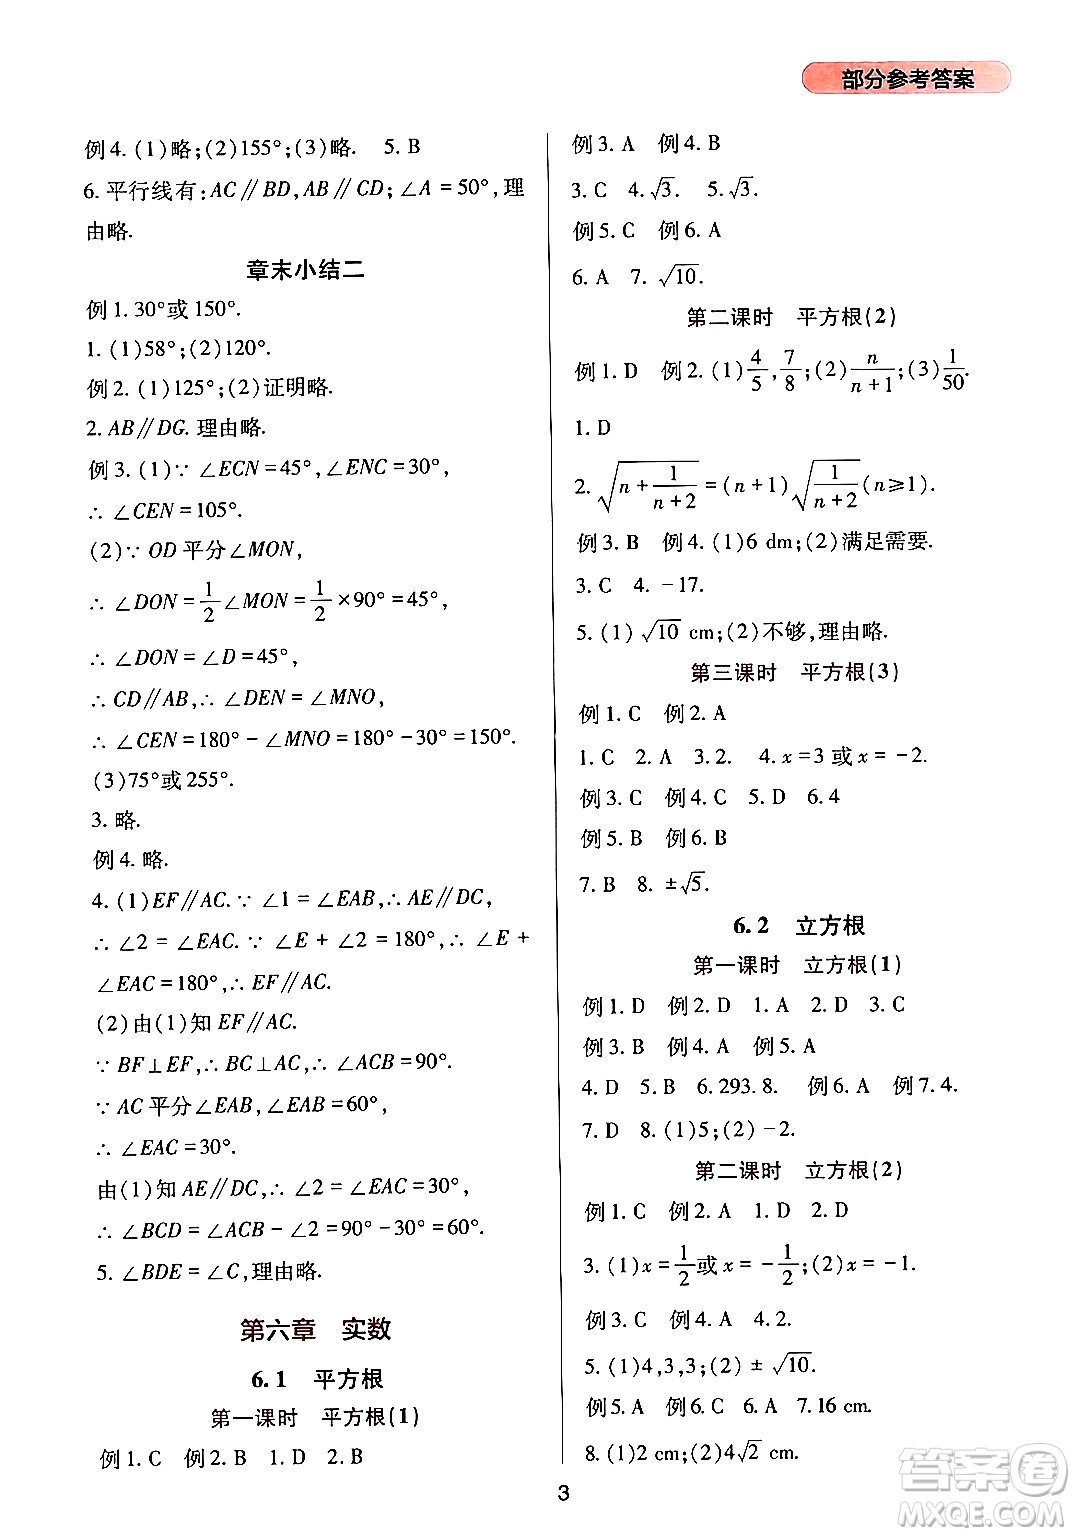 部分参考答案
例4. (1)略;(2)155°;(3)略.　5. B
6. 平行线有:AC∥BD,AB∥CD;∠A=50°,理
由略.
章末小结二
例1. 30°或150°.
1. (1)58°;(2)120°.
例2. (1)125°;(2)证明略.
2. AB∥DG. 理由略.
例3. (1)∵ ∠ECN=45°,∠ENC=30°,
∴ ∠CEN=105°.
(2)∵ OD平分∠MON,
∴ ∠DON=1/2∠MON=1/2×90°=45°,
∴ ∠DON=∠D=45°,
∴ CD∥AB,∴ ∠DEN=∠MNO,
∴ ∠CEN=180°-∠MNO=180°-30°=150°.
(3)75°或255°.
3. 略.
例4. 略.
4. (1)EF∥AC. ∵ ∠1=∠EAB,∴ AE∥DC,
∴ ∠2=∠EAC. ∵ ∠E+∠2=180°,∴ ∠E+
∠EAC=180°,∴ EF∥AC.
(2)由(1)知EF∥AC.
∵ BF⊥EF,∴ BC⊥AC,∴ ∠ACB=90°.
∵ AC平分∠EAB,∠EAB=60°,
∴ ∠EAC=30°.
由(1)知AE∥DC,∴ ∠2=∠EAC=30°,
∴ ∠BCD=∠ACB-∠2=90°-30°=60°.
5. ∠BDE=∠C,理由略.
第六章　实数
6.1　平方根
第一课时　平方根(1)
例1. C　例2. B　1. D　2. B
例3. A　例4. B
3. C　4. √3.　5. √3.
例5. C　例6. A
6. A　7. √10.
第二课时　平方根(2)
例1. D　例2. (1)4/5,7/8;(2)n/(n+1);(3)1/50.
1. D
2. √(n+1/(n+2))=(n+1)√(1/(n+2))(n≥1).
例3. B　例4. (1)6 dm;(2)满足需要.
3. C　4. -17.
5. (1)√10 cm;(2)不够,理由略.
第三课时　平方根(3)
例1. C　例2. A
1. C　2. A　3. 2.　4. x=3或x=-2.
例3. C　例4. C　5. D　6. 4
例5. B　例6. B
7. B　8. ±√5.
6.2　立方根
第一课时　立方根(1)
例1. D　例2. D　1. A　2. D　3. C
例3. B　例4. A　例5. A
4. D　5. B　6. 293.8.　例6. A　例7. 4.
7. D　8. (1)5;(2)-2.
第二课时　立方根(2)
例1. C　例2. A　1. D　2. D
3. (1)x=1/2或x=-1/2;(2)x=-1.
例3. C　例4. A　4. 2.
5. (1)4,3,3;(2)±√10.
例5. A　例6. C　6. A　7. 16 cm.
8. (1)2 cm;(2)4√2 cm.
3
答案圈
MXQE.COM